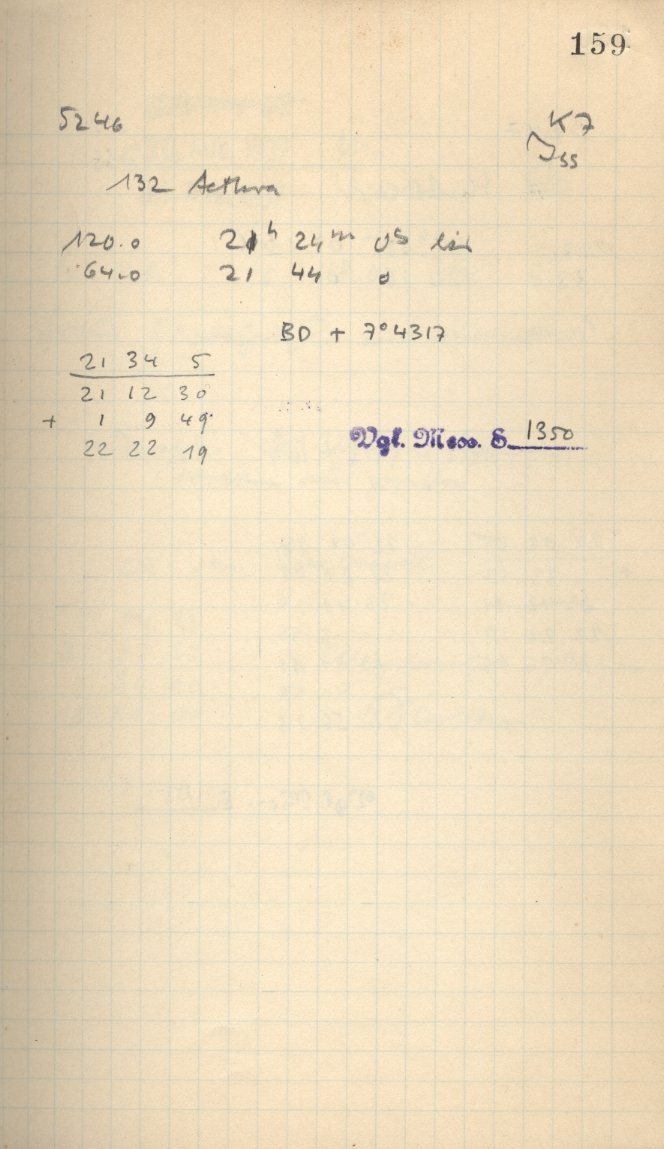 159
5246 K7
J55
132 Aethra
120.0 21h 24m 0s
64.0 21 44 0
BD + 7° 4317
21 34 5
21 12 30
+ 1 9 49
22 22 19
Vgl. Mess. S. 1350